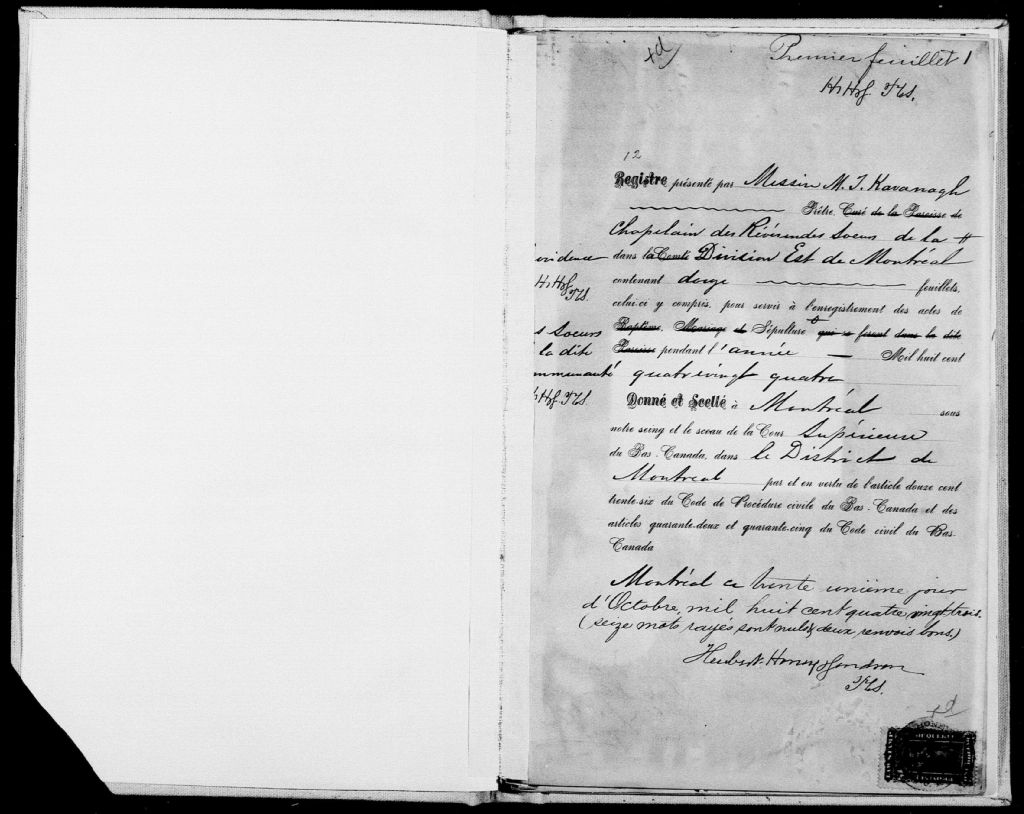 Premier feuillet 1
HHG. PHS.
12
Registre présenté par Messire M. J. Kavanagh
Prêtre, Curé de la Paroisse de
Chapelain des Révérendes Soeurs de la #
dans la Comté Division Est de Montréal
contenant douze feuillets,
celui-ci y compris, pour servir à l'enregistrement des actes de
Baptême, Mariage et Sépulture qui se feront dans la dite
Paroisse pendant l'année Mil huit cent
quatrevingt quatre
Donné et Scellé à Montréal sous
notre seing et le sceau de la Cour Supérieure
du Bas-Canada, dans le District de
Montreal par et en vertu de l'article douze cent
trente-six du Code de Procédure civile du Bas-Canada et des
articles quarante-deux et quarante-cinq du Code civil du Bas-
Canada
Montréal ce trente unième jour
d'Octobre, mil huit cent quatre vingt trois.
(seize mots rayés sont nuls & deux renvois bons.)
ovidence
s Soeurs
la dite
mmunauté